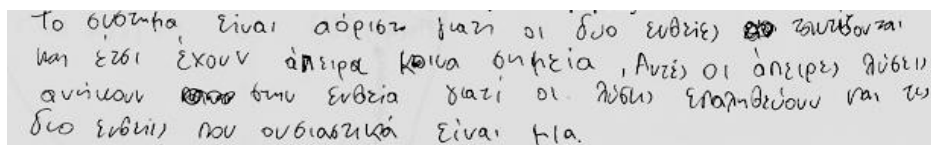 Το σύστημα είναι αόριστο γιατί οι δυο ευθείες ταυτίζονται
και έτσι έχουν άπειρα κοινα σημεία, Αυτές οι άπειρες λύσεις
ανήκουν στην ευθεία γιατί οι λύσεις επαληθεύουν και τις
δυο ευθείες που ουσιαστικά είναι μια.